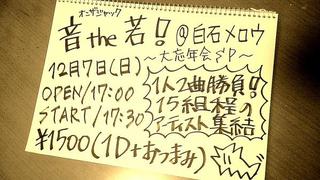 オンザジャック
音the若! @白石メロウ
〜大忘年会SP〜
12月7日(日)
OPEN/17:00
START/17:30
¥1500(1D+おつまみ)
1人2曲勝負!!
15組程の
アーティスト集結